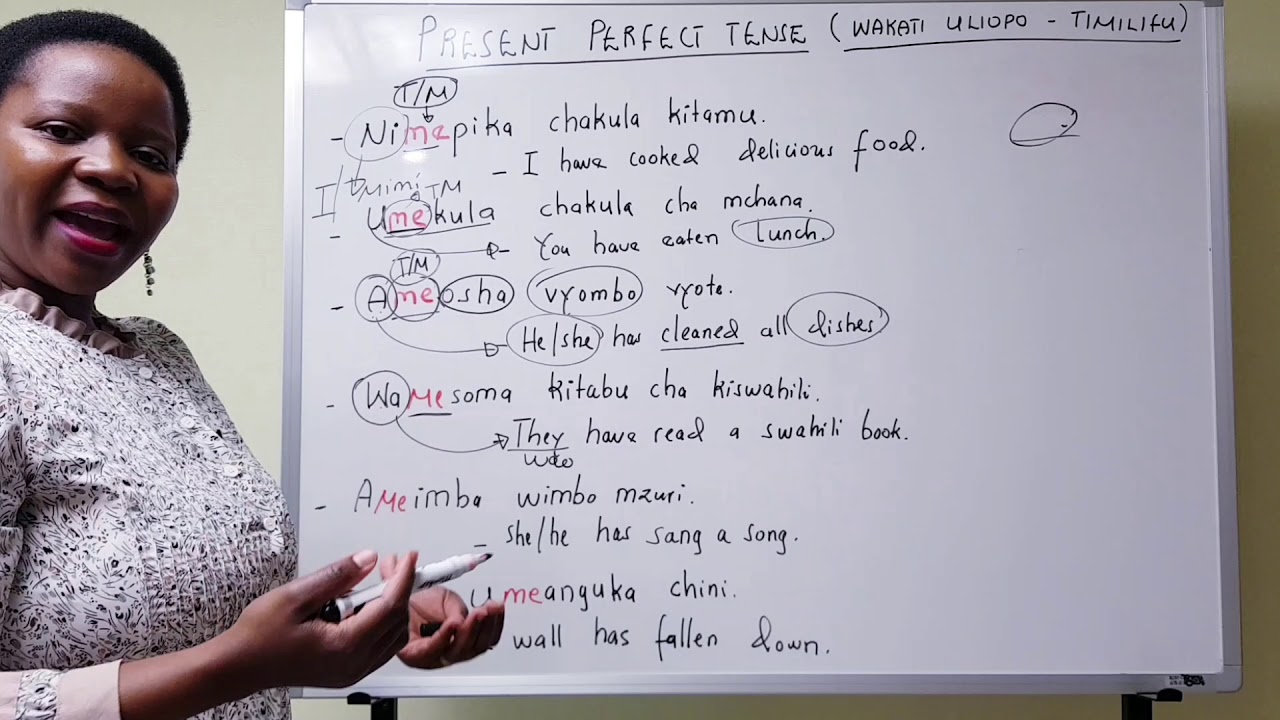 PRESENT PERFECT TENSE (WAKATI ULIOPO - TIMILIFU)
T/M
- Nimepika chakula kitamu.
- I have cooked delicious food.
I/Mimi TM
- Umekula chakula cha mchana.
- You have eaten lunch.
T/M
- Ameosha vyombo vyote.
He/she has cleaned all dishes
- Wamesoma kitabu cha kiswahili.
They have read a swahili book.
wao
- Ameimba wimbo mzuri.
- she/he has sang a song.
umeanguka chini.
wall has fallen down.